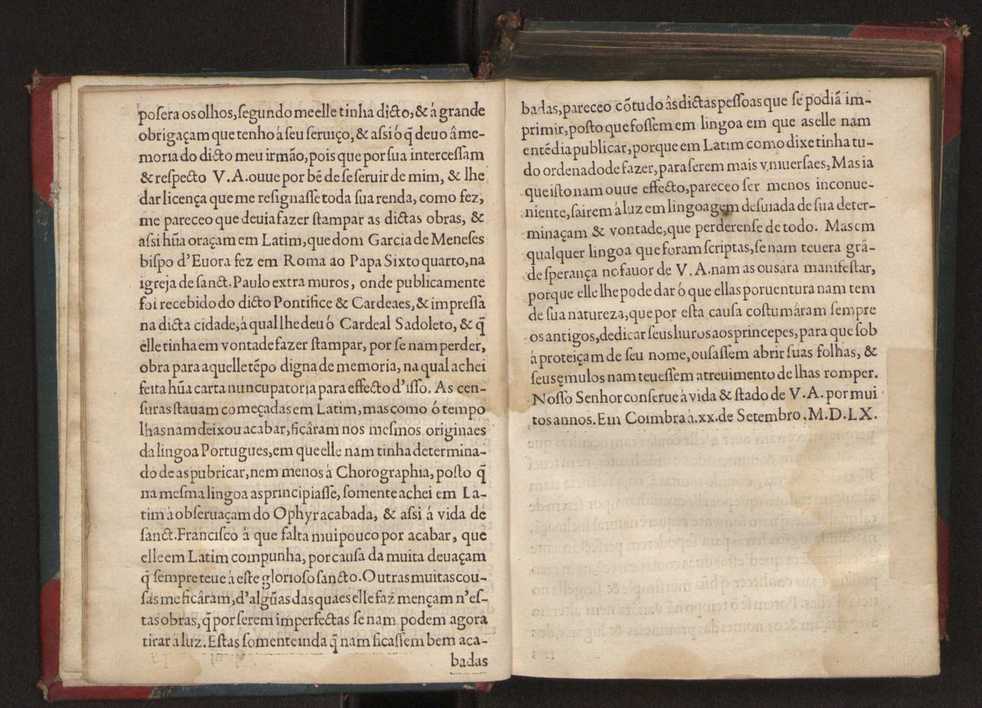 posera os olhos, segundo me elle tinha dicto, & á grande
obrigaçam que tenho á seu seruiço, & assi ó q̃ deuo â me-
moria do dicto meu irmão, pois que por sua intercessam
& respecto V. A. ouue por bẽ de se seruir de mim, & lhe
dar licença que me resignasse toda sua renda, como fez,
me pareceo que deuia fazer stampar as dictas obras, &
assi hũa oraçam em Latim, que dom Garcia de Meneses
bispo d'Euora fez em Roma ao Papa Sixto quarto, na
igreja de sanct. Paulo extra muros, onde publicamente
foi recebido do dicto Pontifice & Cardeaes, & impressa
na dicta cidade, á qual lhe deu ó Cardeal Sadoleto, & q̃
elle tinha em vontade fazer stampar, por se nam perder,
obra para aquelle tẽpo digna de memoria, na qual achei
feita hũa carta nuncupatoria para effecto d'isso. As cen-
suras stauam começadas em Latim, mas como ó tempo
lhas nam deixou acabar, ficâram nos mesmos originaes
da lingoa Portugues, em que elle nam tinha determina-
do de as pubricar, nem menos á Chorographia, posto q̃
na mesma lingoa as principiasse, somente achei em La-
tim à obseruaçam do Ophyr acabada, & assi á vida de
sanct. Francisco à que falta mui pouco por acabar, que
elle em Latim compunha, por causa da muita deuaçam
q̃ sempre teue à este glorioso sancto. Outras muitas cou-
sas me ficâram, d'algũas das quaes elle faz mençam n'es-
tas obras, q̃ por serem imperfectas se nam podem agora
tirar à luz. Estas somente inda q̃ nam ficassem bem aca-
badas
badas, pareceo cõ tudo âs dictas pessoas que se podiã im-
primir, posto que fossem em lingoa em que as elle nam
entẽdia publicar, porque em Latim como dixe tinha tu-
do ordenado de fazer, para serem mais vniuersaes, Mas ia
que isto nam ouue effecto, pareceo ser menos inconue-
niente, sairem á luz em lingoagem desuiada de sua deter-
minaçam & vontade, que perderense de todo. Mas em
qualquer lingoa que foram scriptas, se nam teuera grã-
de sperança no fauor de V. A. nam as ousára manifestar,
porque elle lhe pode dar ó que ellas por uentura nam tem
de sua natureza, que por esta causa costumáram sempre
os antigos, dedicar seus liuros aos princepes, para que sob
á proteiçam de seu nome, ousassem abrir suas folhas, &
seus ẽmulos nam teuessem atreuimento de lhas romper.
Nosso Senhor conserue à vida & stado de V. A. por mui
tos annos. Em Coimbra à. xx. de Setembro. M. D. LX.